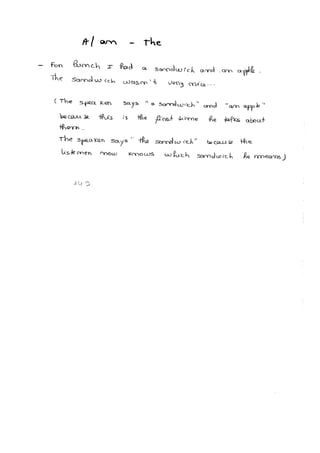 A/ an - the
- For lunch I had a sandwich and an apple.
The sandwich wasn't very nice...
( The speaker says "a sandwich" and "an apple"
because this is the first time he talks about
them.
The speaker says "the sandwich" because the
listener now knows which sandwich he means)